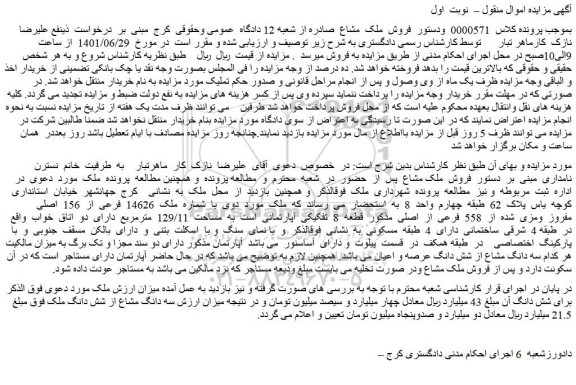 آگهی مزایده اموال منقول – نوبت اول
بموجب پرونده کلاس 0000571 ودستور فروش ملک مشاع صادره از شعبه 12 دادگاه عمومی وحقوقی کرج مبنی بر درخواست ذینفع علیرضا
نازک کارماهر تبار توسط کارشناس رسمی دادگستری به شرح زیر توصیف و ارزیابی شده و مقرر است در مورخ 1401/06/29 از ساعت
9الی10صبح در محل اجرای احکام مدنی از طریق مزایده به فروش میرسد . مزایده از قیمت ریال ریال طبق نظریه کارشناس شروع و به هر شخص
حقیقی و حقوقی که بالاترین قیمت را بدهد فروخته خواهد شد. ده درصد از وجه مزایده را فی المجلس بصورت وجه نقد یا چک بانکی تضمینی از خریدار اخذ
و الباقی وجه مزایده ظرف یک ماه از وی وصول و پس از انجام مراحل قانونی و صدور حکم تملیک مورد مزایده به نام خریدار منتقل خواهد شد. در
صورتی که در مهلت مقرر خریدار وجه مزایده را پرداخت ننماید سپرده وی پس از کسر هزینه های مزایده به نفع دولت ضبط و مزایده تجدید می گردد. کلیه
هزینه های نقل وانتقال بعهده محکوم علیه است که از محل فروش پرداخت خواهد شد طرفین می توانند ظرف مدت یک هفته از تاریخ مزایده نسبت به نحوه
انجام مزایده اعتراض نمایند که در این صورت تا رسیدگی به اعتراض از سوی دادگاه مورد مزایده بنام خریدار منتقل نخواهد شد ضمنا طالبین شرکت در
مزایده می توانند ظرف 5 روز قبل از مزایده بااطلاع از مال مورد مزایده بازدید نمایند.چنانچه روز مزایده مصادف با ایام تعطیل باشد روز بعددر همان
ساعت و مکان برگزار خواهد شد
مورد مزایده و بهای آن طبق نظر کارشناس بدین شرح است: در خصوص دعوی آقای علیرضا نازک کار ماهرتبار به طرفیت خانم نسترن
نامداری مبنی بر دستور فروش ملک مشاع پس از حضور در شعبه محترم و مطالعه پرونده و همچنین مطالعه پرونده ملک مورد دعوی در
اداره ثبت مربوطه و نیز مطالعه پرونده شهرداری ملک فوقالذکر و همچنین بازدید از محل ملک به نشانی کرج جهانشهر خیابان استانداری
کوچه یاس پلاک 62 طبقه چهارم واحد 8 به استحضار می رساند که ملک مورد دوی با شماره ملک 14626 فرعی از 156 اصلی
مفروز ومزی شده از 558 فرعی از اصلی مذکور قطعه 8 تفکیکی آپارتمانی است به مساحت 129/11 مترمربع دارای دو اتاق خواب واقع
در طبقه 4 شرقی ساختمانی دارای 4 طبقه مسکونی به نشانی فوقالذکر با نمای سنگ و با اسکلت بتنی و دارای بالکن مسقف جنوبی و با
پارکینگ اختصاصی در طبقه همکف در قسمت پیلوت و دارای آسانسور می باشد آپارتمان مذکور دارای دو سند مجزا و تک برگ به میزان مالکیت
هر کدام سه دانگ مشاع از شش دانگ عرصه و اعیان می باشد. همچنین لازم به توضیح می باشد که در حال حاضر آپارتمان دارای مستاجر است که در آن
سکونت دارد و پس از فروش ملک مشاع ودر صورت تخلیه می بایست مبلغ ودیعه مستاجر که نزد مالکین می باشد به مستاجر عودت داده شود.
در پایان در اجرای قرار کارشناسی شعبه محترم با توجه به بررسی های صورت گرفته و نیز بازدید به عمل آمده میزان ارزش ملک مورد دعوی فوق الذکر
برای شش دانگ آن مبلغ 43 میلیارد ریال معادل چهار میلیارد و سیصد میلیون تومان و در نتیجه میزان ارزش سه دانگ مشاع از شش دانگ ملک فوق مبلغ
21.5 میلیارد ریال معادل دو میلیارد و صدوپنجاه میلیون تومان تعیین و اعلام می گردد.
دادورزشعبه 6 اجرای احکام مدنی دادگستری کرج –